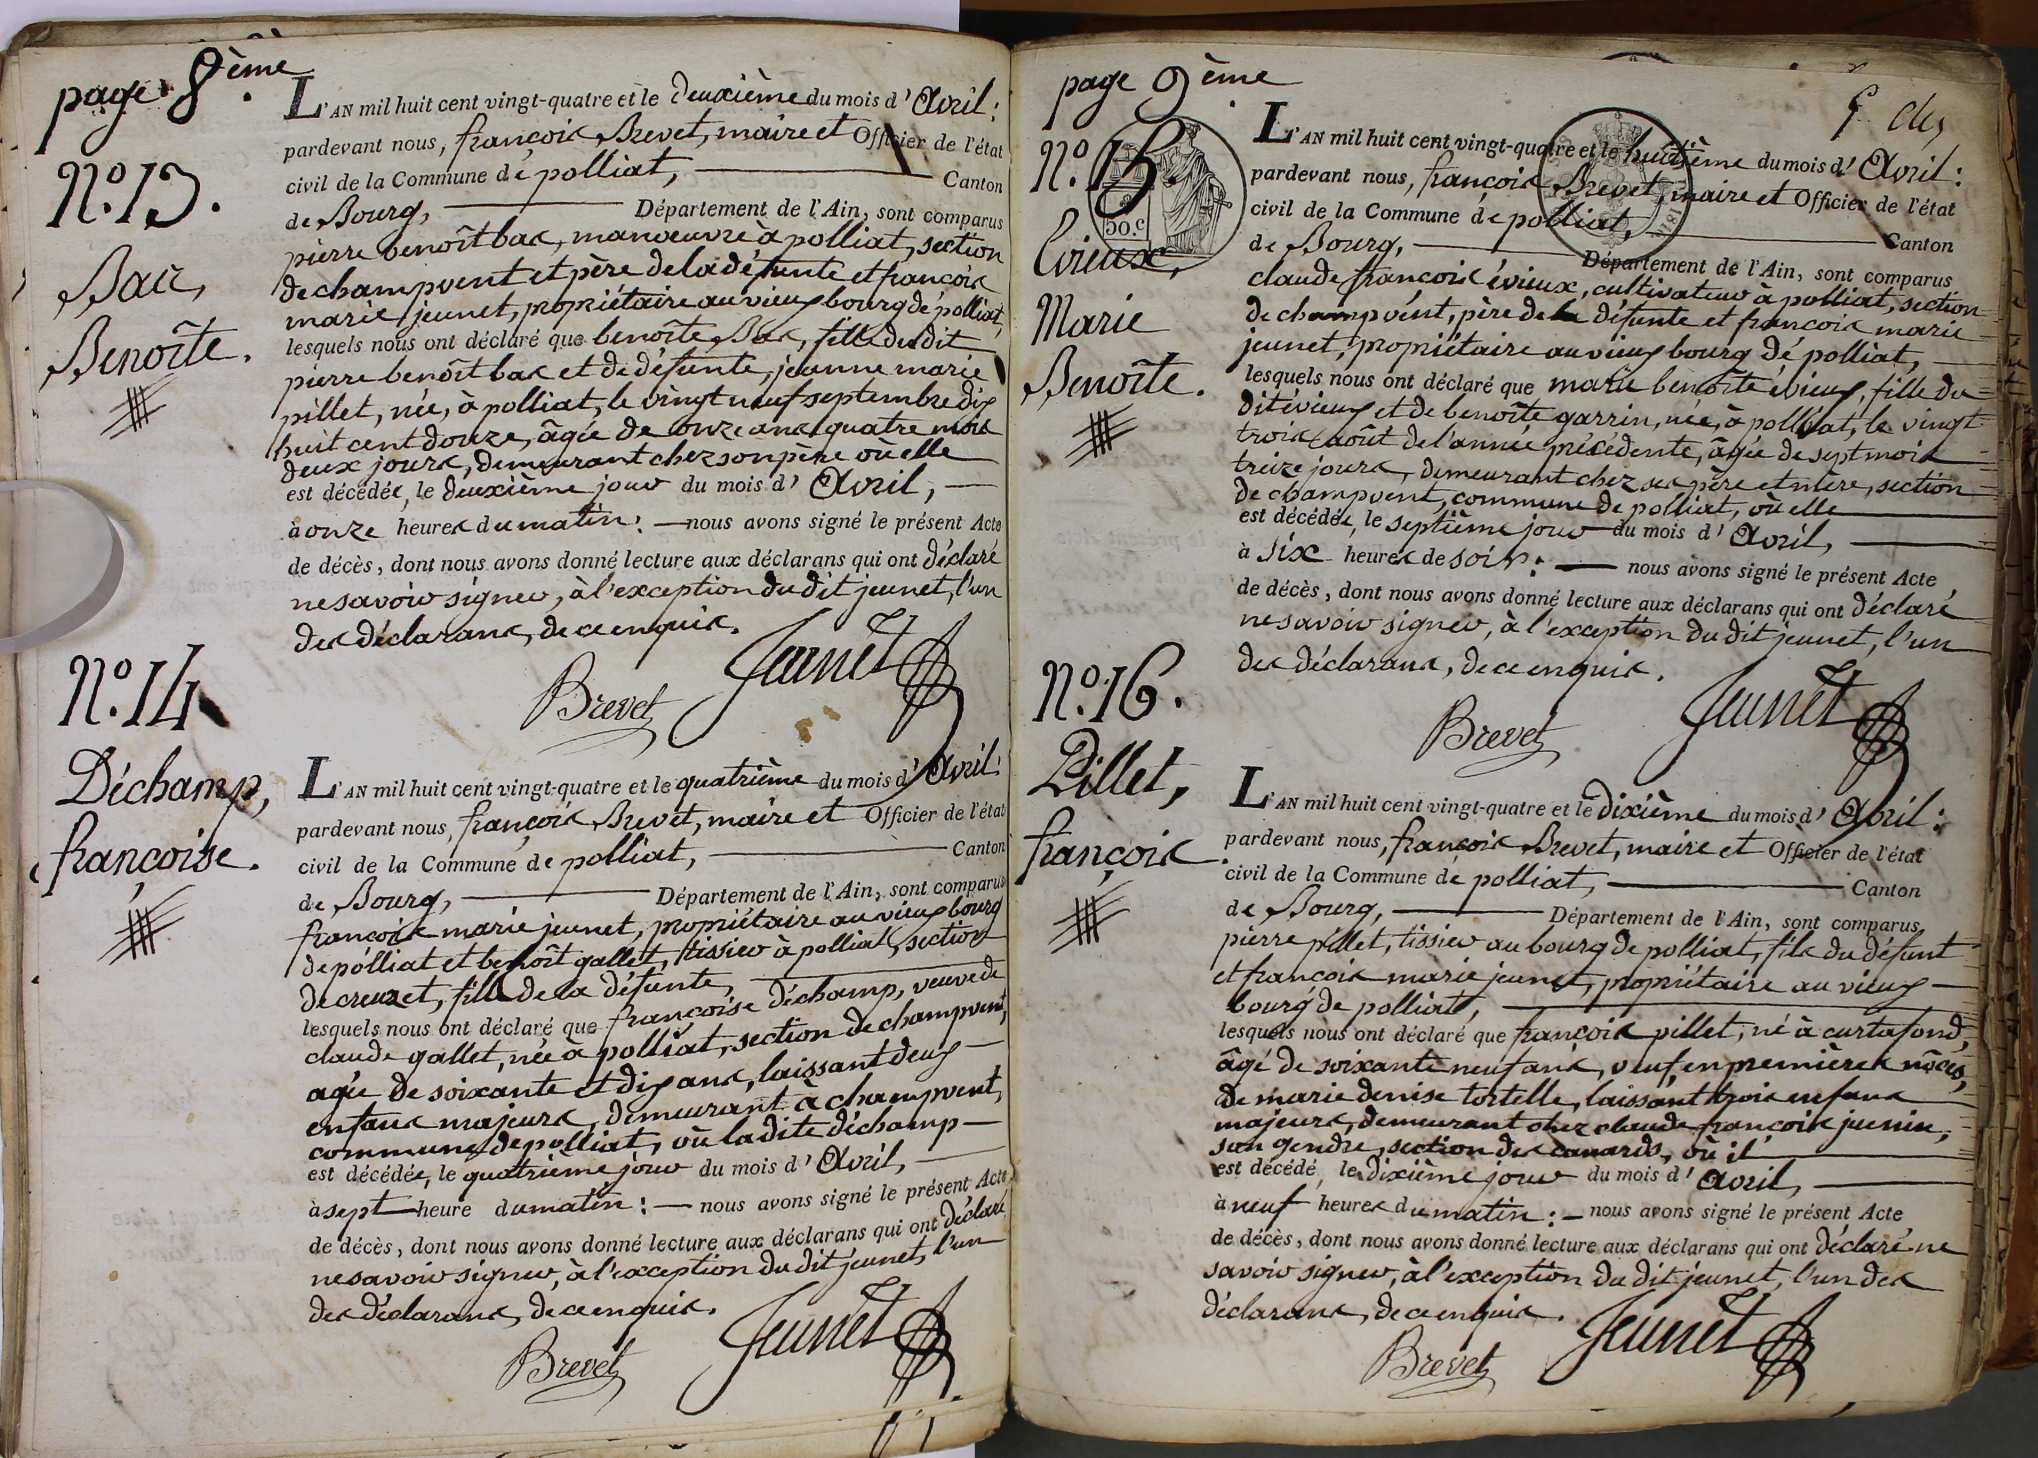 page 8ème.
N.º 13.
Bac,
Benoîte.
L'AN mil huit cent vingt-quatre et le deuxième du mois d'Avril:
pardevant nous, françois Brevet, maire et Officier de l'état
civil de la Commune de polliat, Canton
de Bourg, Département de l'Ain, sont comparus
pierre benoît bac, manœuvre à polliat, section
de champvent et père de la défunte et françois
marie jeunet, propriétaire au vieux bourg de polliat,
lesquels nous ont déclaré que benoîte Bac, fille du dit
pierre benoît bac et de défunte, jeanne marie
pillet, née, à polliat, le vingt neuf septembre dix
huit cent douze, âgée de onze ans quatre mois
deux jours, demeurant chez son père où elle
est décédée, le deuxième jour du mois d'Avril,
à onze heures du matin: nous avons signé le présent Acte
de décès, dont nous avons donné lecture aux déclarans qui ont déclaré
ne savoir signer, à l'exception du dit jeunet, l'un
des déclarans, de ce enquis.
Brevet Jeunet
N.º 14
Déchamp,
françoise.
L'AN mil huit cent vingt-quatre et le quatrième du mois d'Avril:
pardevant nous, françois Brevet, maire et Officier de l'état
civil de la Commune de polliat, Canton
de Bourg, Département de l'Ain, sont comparus
françois marie jeunet, propriétaire au vieux bourg
de polliat et benoît gallet, tissier à polliat, section
de creuzet, fils de la défunte,
lesquels nous ont déclaré que françoise déchamp, veuve de
claude gallet, née à polliat, section de champvent,
agée de soixante et dix ans, laissant deux
enfans majeurs, demeurant à champvent,
commune de polliat, où la dite déchamp
est décédée, le quatrième jour du mois d'Avril,
à sept heure du matin: nous avons signé le présent Acte
de décès, dont nous avons donné lecture aux déclarans qui ont déclaré
ne savoir signer, à l'exception du dit jeunet, l'un
des déclarans, de ce enquis.
Brevet Jeunet
page 9ème.
N.º 15.
Evieux,
Marie
Benoîte.
50.c
L'AN mil huit cent vingt-quatre et le huitième du mois d'Avril:
pardevant nous, françois Brevet, maire et Officier de l'état
civil de la Commune de polliat, Canton
de Bourg, Département de l'Ain, sont comparus
claude françois évieux, cultivateur à polliat, section
de champvent, père de la défunte et françois marie
jeunet, propriétaire au vieux bourg de polliat,
lesquels nous ont déclaré que marie benoîte évieux, fille du
dit évieux et de benoîte garrin, née, à polliat, le vingt
trois août de l'année précédente, âgée de sept mois
treize jours, demeurant chez ses père et mère, section
de champvent, commune de polliat, où elle
est décédée, le septième jour du mois d'Avril,
à six heures de soir: nous avons signé le présent Acte
de décès, dont nous avons donné lecture aux déclarans qui ont déclaré
ne savoir signer, à l'exception du dit jeunet, l'un
des déclarans, de ce enquis.
Brevet Jeunet
N.º 16.
Pillet,
françois.
L'AN mil huit cent vingt-quatre et le dixième du mois d'Avril:
pardevant nous, françois Brevet, maire et Officier de l'état
civil de la Commune de polliat, Canton
de Bourg, Département de l'Ain, sont comparus
pierre pillet, tissier au bourg de polliat, fils du défunt
et françois marie jeunet, propriétaire au vieux
bourg de polliat,
lesquels nous ont déclaré que françois pillet, né à curtafond,
âgé de soixante neuf ans, veuf, en premières nôces,
de marie denise tortelle, laissant trois enfans
majeurs, demeurant chez claude françois juenin,
son gendre, section des canards, où il
est décédé, le dixième jour du mois d'Avril,
à neuf heures du matin: nous avons signé le présent Acte
de décès, dont nous avons donné lecture aux déclarans qui ont déclaré ne
savoir signer, à l'exception du dit jeunet, l'un des
déclarans, de ce enquis.
Brevet Jeunet